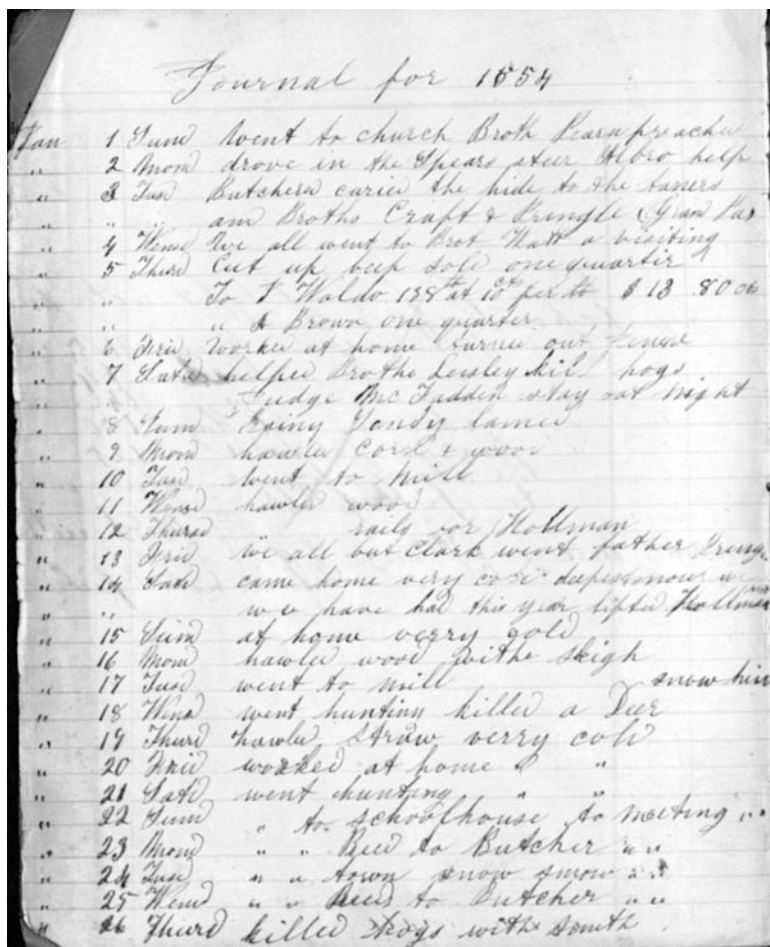 Journal for 1854
Jan 1 Sund Went to church Broth preached
" 2 Mond drove in the Spears steer Albro help
" 3 Tusd Butcherd caried the hide to the taners
" " and Broths Craft & Pringle (Gran Pa)
" 4 Wensd We all went to Brot Watt a visiting
" 5 Thurd Cut up beef sole one quartir
" To F Waldo 138 lb at 10 ct per lb $ 13 .80 cts
" " Brown one quarter
" 6 Frid Worked at home turned out
" 7 Satd helped Broths Leisley kill hogs
Judge McFadden stay all night
" 8 Sund Rainy lamed
" 9 Mond hawled corn & wood
10 Tusd went to mill
" 11 Wensd hawled wood
" 12 Thursd " rails for Hollman
" 13 Frid We all but Clark went father Pringl
" 14 Satd came home very cold deepest snow we
" we have had this year lifted Hollman
" 15 Sund at home verry cold
" 16 Mond hawled wood withe sleigh
" 17 Tusd went to mill snow
" 18 Wensd went hunting killed a Deer
" 19 Thurd hawled straw verry cold
" 20 Frid worked at home " "
" 21 Satd went hunting " "
" 22 Sund " to schoolhouse to meeting " "
" 23 Mond " " Reed to Butcher " "
" 24 Tusd " " town snow snow " "
" 25 Wensd " " Reeds to Butcher " "
" 26 Thurd killed hogs with Smith